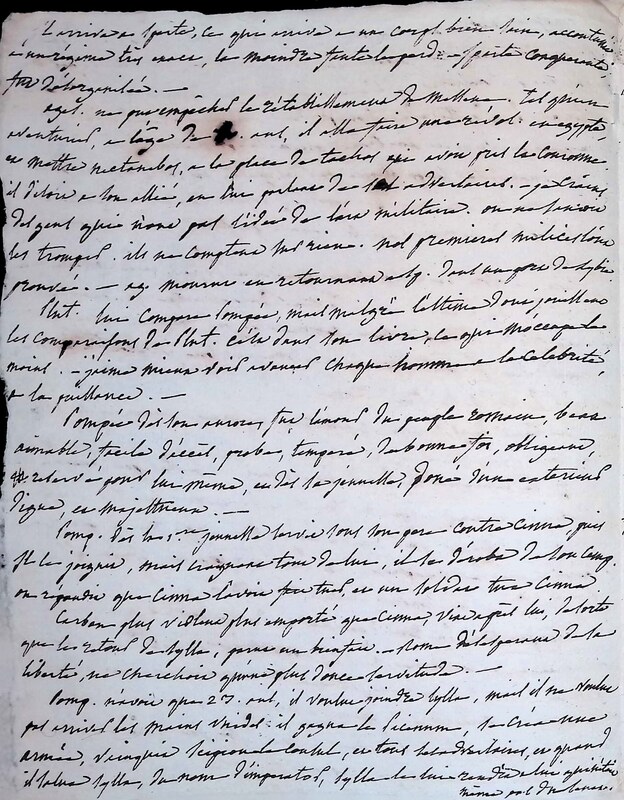 il arriva a sparte, ce qui arrive a un corps bien sain, accoutumé
a un régime très exact, la moindre faute le perd. - sparte conquerante,
fut désorganisée. -
ages. ne put empêcher le rétablissement de Messene. tel qu'un
aventurier, a l'age de ans, il alla faire une révol. en egypte,
et mettre nectanebos, a la place de tachos qui avoit pris la couronne
il disoit a son allié, en lui parlant de ses adversaires. - je crains
des gens qui n'ont pas l'idée de l'art militaire. on ne sauroit
les tromper. ils ne comptent sur rien. nos premieres milices l'ont
prouvé. - ag. mourut en retournant a sp. dans un port de Lybie
Plut. lui compare Pompée, mais malgré l'estime dont jouissent
les comparaisons de Plut. cela dans son livre, est ce qui m'occupe le
moins. - j'aime mieux voir avancer chaque homme a la célébrité,
a la puissance. -
Pompée dès son aurore, fut l'amour du peuple romain, beau
aimable, facile d'accès, probe, temperé, de bonne foi, obligeant,
et reservé pour lui même, et dès sa jeunesse, doué d'un exterieur
digne, et majestueux. -
Pomp. dès sa jeunesse servit sous son pere contre Cinna, puis
il le joignit, mais craignant tout de lui, il se déroba de son camp.
on répandit que Cinna l'avoit fait tuer, et un soldat tua Cinna
Carbon plus violent plus emporté que Cinna, vint après lui, de sorte
que le retour de Sylla, parut un bienfait. - Rome désesperant de la
liberté, ne cherchoit qu'une plus douce servitude. -
Pomp. n'avoit que 23 ans, il voulut joindre Sylla, mais il ne voulut
pas arriver les mains vuides. il gagna le Picenum, se créa une
armée, vainquit Scipion le Consul, et tous ses adversaires, et quand
il salua Sylla, du nom d'imperator, Sylla le lui rendit a lui qui n'étoit
même pas du senat.